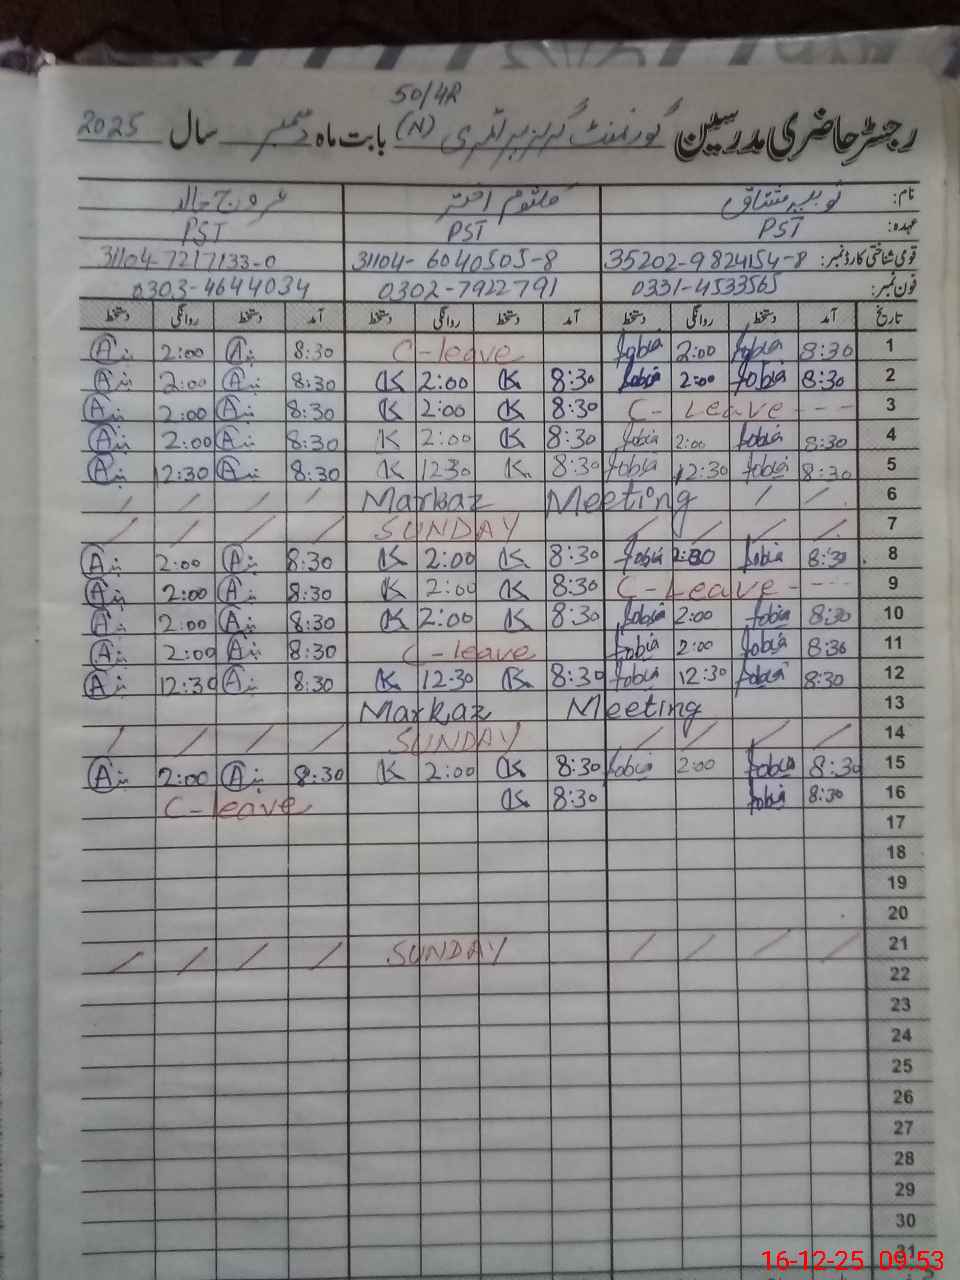 50/4R
رجسٹر حاضری مدرسین گورنمنٹ گرلز پرائمری (N) بابت ماہ دسمبر سال 2025
نام: ثوبیہ مشتاق کلثوم اختر عروج خالد
عہدہ: PST PST PST
قومی شناختی کارڈ نمبر: 35202-9824154-8 31104-6040505-8 31104-7217133-0
فون نمبر: 0331-4533565 0302-7922791 0303-4644034
تاریخ آمد دستخط روانگی دستخط آمد دستخط روانگی دستخط آمد دستخط روانگی دستخط
1 8:30 fobia 2:00 fobia C-leave 8:30 A 2:00 A
2 8:30 fobia 2:00 fobia 8:30 K 2:00 K 8:30 A 2:00 A
3 C-Leave --- 8:30 K 2:00 K 8:30 A 2:00 A
4 8:30 fobia 2:00 fobia 8:30 K 2:00 K 8:30 A 2:00 A
5 8:30 fobia 12:30 fobia 8:30 K 12:30 K 8:30 A 12:30 A
6 Markaz Meeting
7 SUNDAY
8 8:30 fobia 2:00 fobia 8:30 K 2:00 K 8:30 A 2:00 A
9 C-Leave ---- 8:30 K 2:00 K 8:30 A 2:00 A
10 8:30 fobia 2:00 fobia 8:30 K 2:00 K 8:30 A 2:00 A
11 8:30 fobia 2:00 fobia C-leave 8:30 A 2:00 A
12 8:30 fobia 12:30 fobia 8:30 K 12:30 K 8:30 A 12:30 A
13 Markaz Meeting
14 SUNDAY
15 8:30 fobia 2:00 fobia 8:30 K 2:00 K 8:30 A 2:00 A
16 8:30 fobia 8:30 K C-leave
17
18
19
20
21 SUNDAY
22
23
24
25
26
27
28
29
30
31
16-12-25 09:53